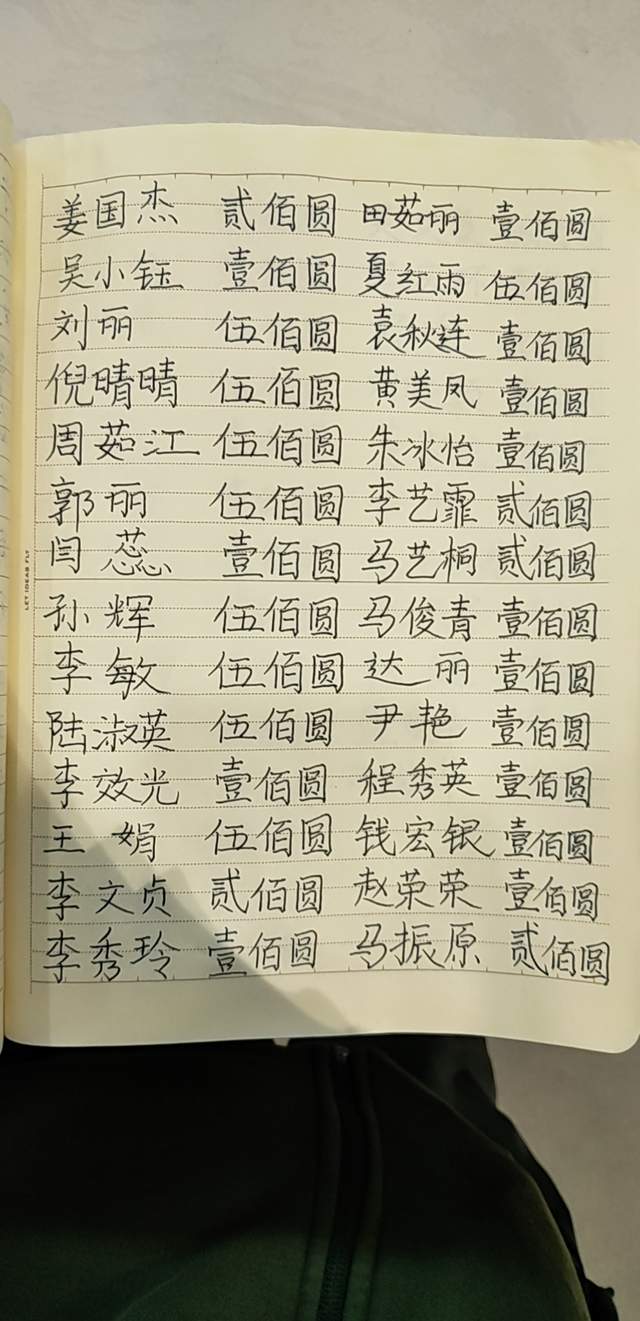 姜国杰 贰佰圆 田茹丽 壹佰圆
吴小钰 壹佰圆 夏红雨 伍佰圆
刘丽 伍佰圆 袁秋连 壹佰圆
倪晴晴 伍佰圆 黄美凤 壹佰圆
周茹江 伍佰圆 朱冰怡 壹佰圆
郭丽 伍佰圆 李艺霏 贰佰圆
闫蕊 壹佰圆 马艺桐 贰佰圆
孙辉 伍佰圆 马俊青 壹佰圆
李敏 伍佰圆 达丽 壹佰圆
陆淑英 伍佰圆 尹艳 壹佰圆
李效光 壹佰圆 程秀英 壹佰圆
王娟 伍佰圆 钱宏银 壹佰圆
李文贞 贰佰圆 赵荣荣 壹佰圆
李秀玲 壹佰圆 马振原 贰佰圆
LET IDEAS FLY